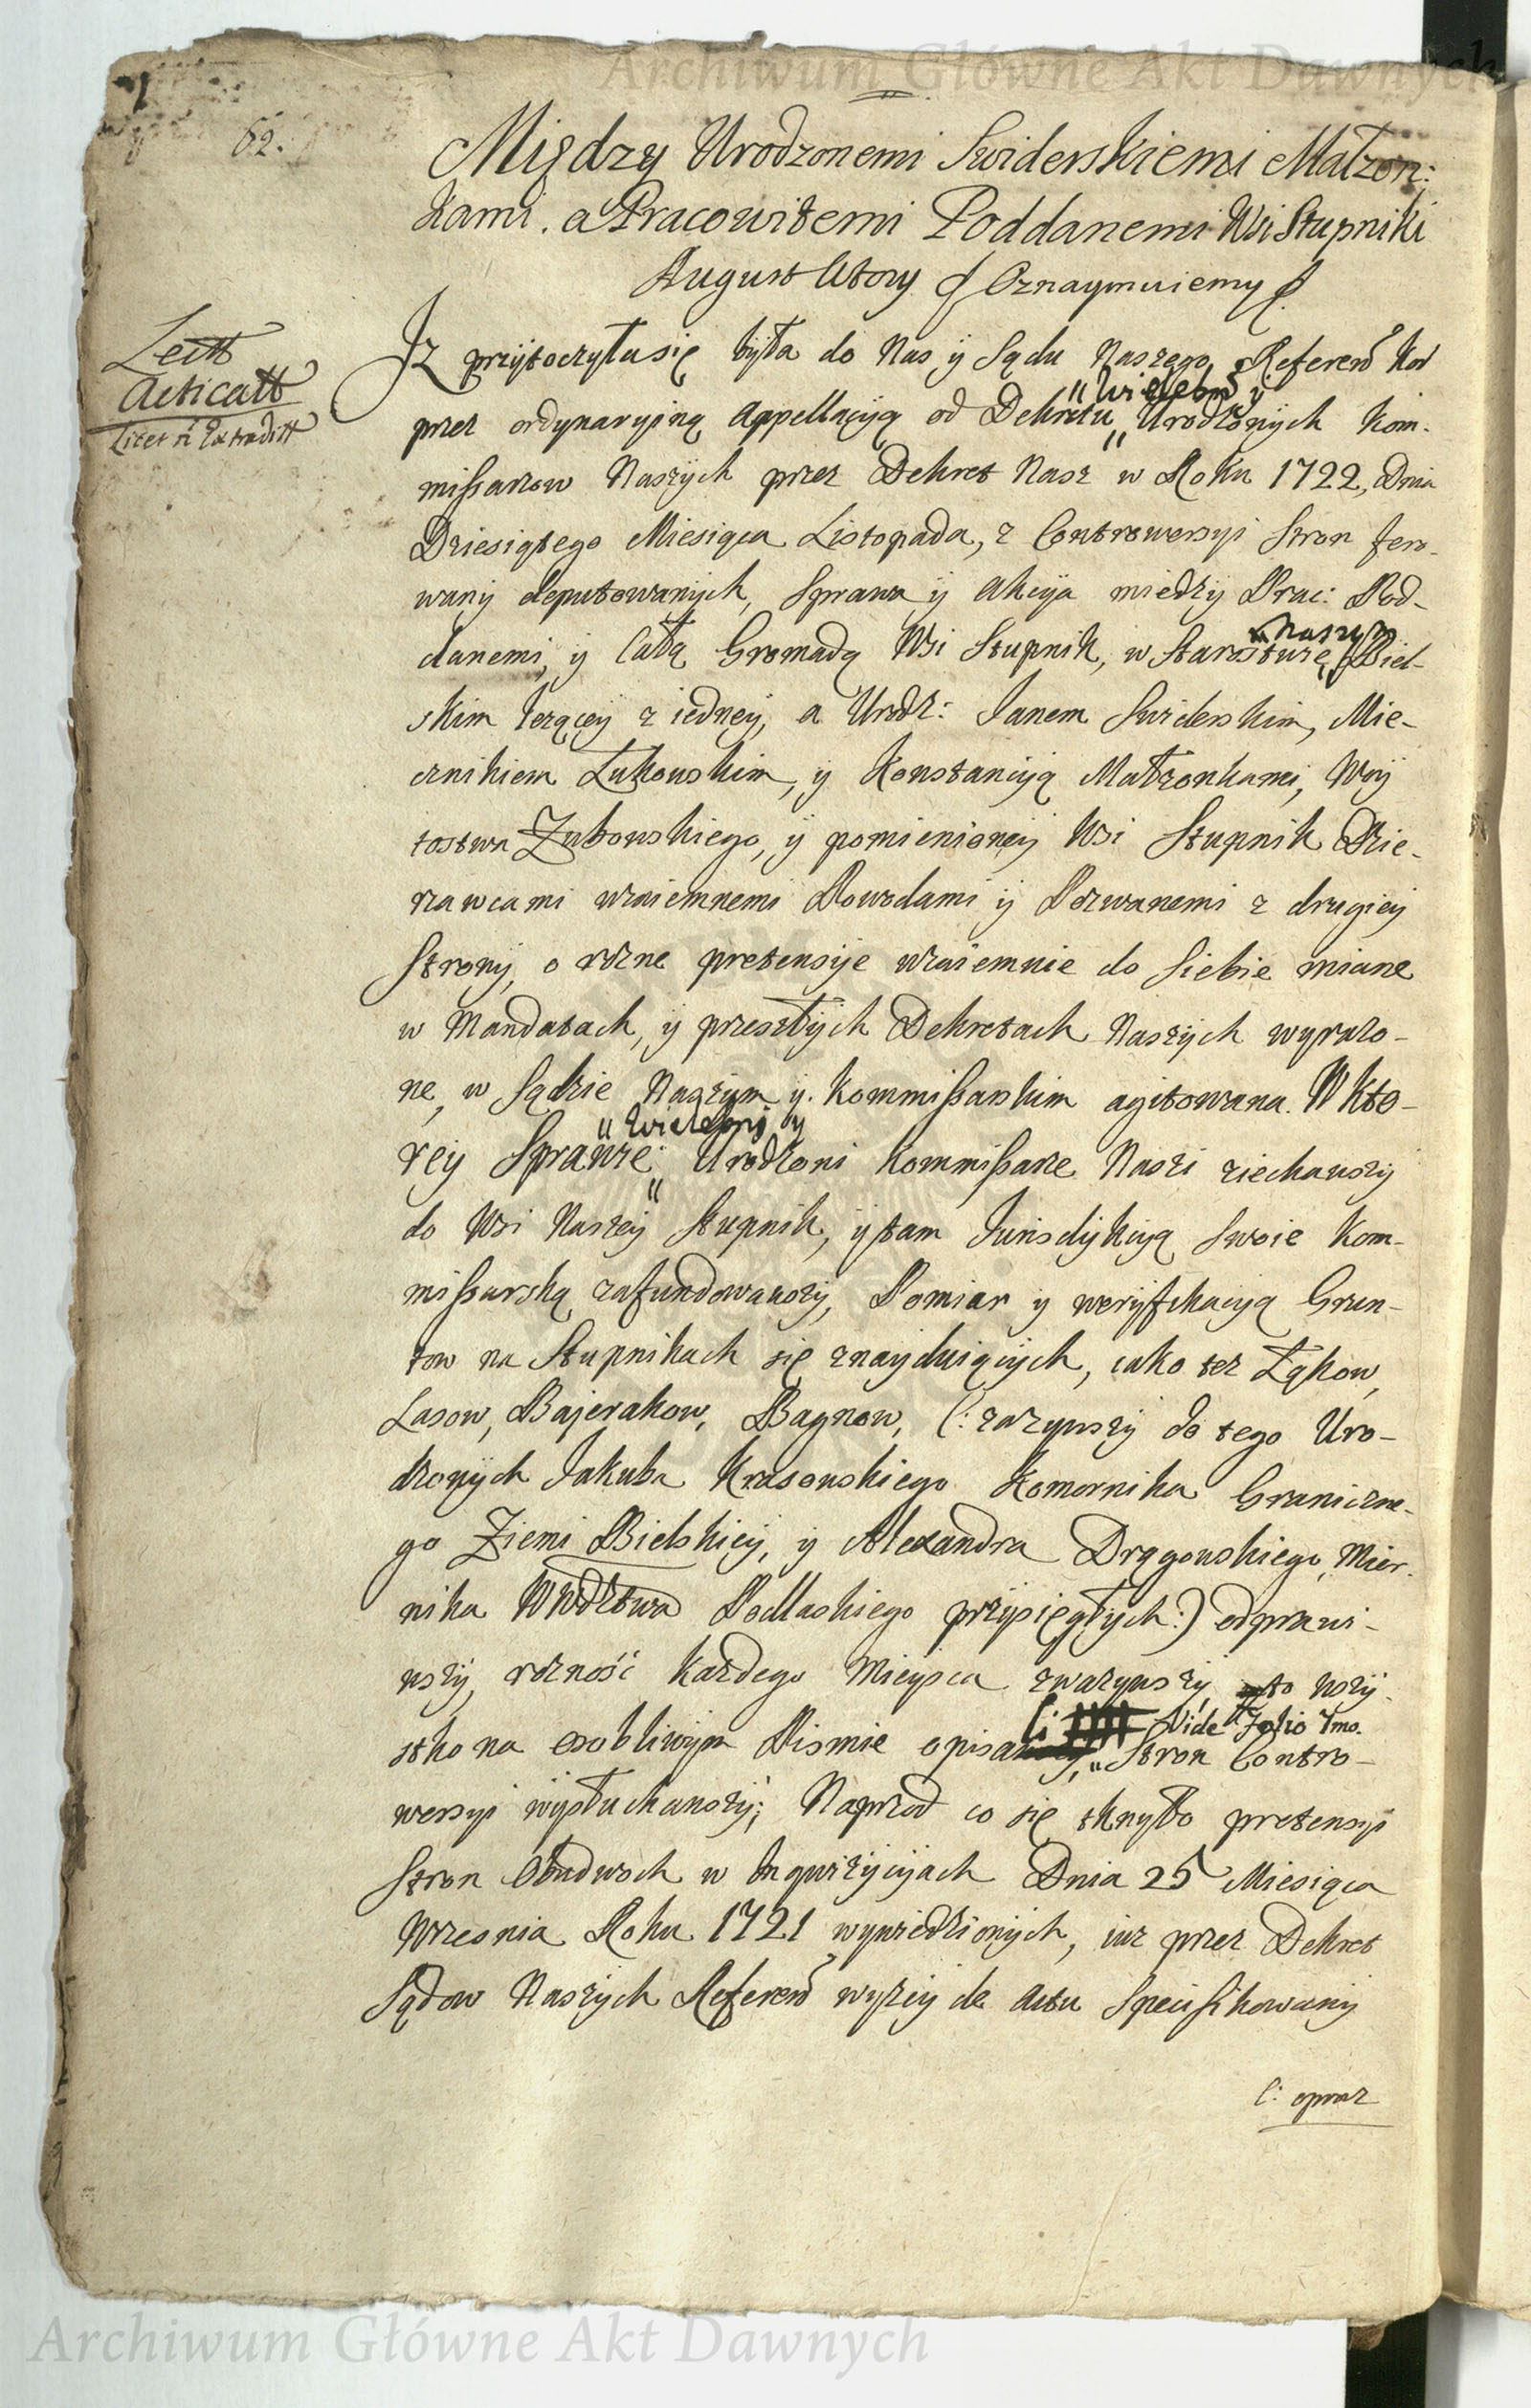 Archiwum Główne Akt Dawnych
62.
Między Urodzonemi Swiderskiemi Małzon:
kami. a Pracowitemi Poddanemi Wsi Stupniki
August Wtory // Oznaymuiemy //
Lectt
Acticatt
Liter ÿ Extraditt
Iz przÿtoczyła się bÿła do Nas ÿ Sądu Naszego Referend Kor
przez ordynaryiną Appellacyią od Dekretu „Wielebn ÿ„ Urodzonÿch Kom-
missarzow Naszÿch przez Dekret Nasz w Roku 1722, Dnia
Dziesiątego Miesiąca Listopada, z Controwersyi Stron fero-
wanÿ deputowanÿch, Sprawa ÿ Akcÿa miedzÿ Prac: Pod-
danemi, ÿ Całą Gromadą Wsi Stupnik, w Starostwie „Naszym„ Biel-
skim lezącey z iedney, a Urodz: Janem Swiderskim, Mie-
cznikiem Łukowskim, ÿ Konstancÿą Małzonkami, Wóÿ
tostwa Zubowskiego, ÿ pomienionęÿ Wsi Stupnik Dzie-
rzawcami wzaiemnemi Powodami ÿ Pozwanemi z drugieÿ
Stronÿ, o rózne pretensÿe wzaiemnie do siebie miane
w Mandatach, ÿ przeszłÿch Dekretach Naszÿch wyrazo-
ne, w Sądzie Naszÿm ÿ Kommissarskim agitowana. W kto-
rey Sprawie „Wielebni ÿ„ Urodzoni Kommissarze Naszi ziechawszÿ
do Wsi Naszeÿ Stupnik, ÿ tam Jurisdÿkcÿą swoie Kom-
missarską zafundowawszÿ, Pomiar ÿ werÿfikacÿą Grun-
tow na Stupnikach się znaÿduiącÿch, iako tez Łąkow,
Lasow, Bajerakow, Bagnow, (: zazywszÿ do tego Uro-
dzonÿch Jakuba Krasowskiego Komornika Graniczne-
go Ziemi Bielskieÿ, ÿ Alexandra Drągowskiego, Mier-
nika Wwdztwa Podlaskiego przÿsięgłÿch:) odprawi-
wszÿ, rózność Kazdego Mieÿsca zwazÿwszÿ, to wszÿ-
stko na osobliwÿm Pismie opisa Vide Folio 7mo. Stron Contro-
wersyi wÿsłuchawszÿ; Naprzod co się tknęło pretensyi
Stron Obudwoch w Inquizÿcÿach Dnia 25 Miesiąca
Wrzesnia Roku 1721 wywiedzionÿch, iuz przez Dekret
Sądow Naszÿch Referend wyzeÿ de Actu Specifikowanÿ
(: opraz
Archiwum Główne Akt Dawnych